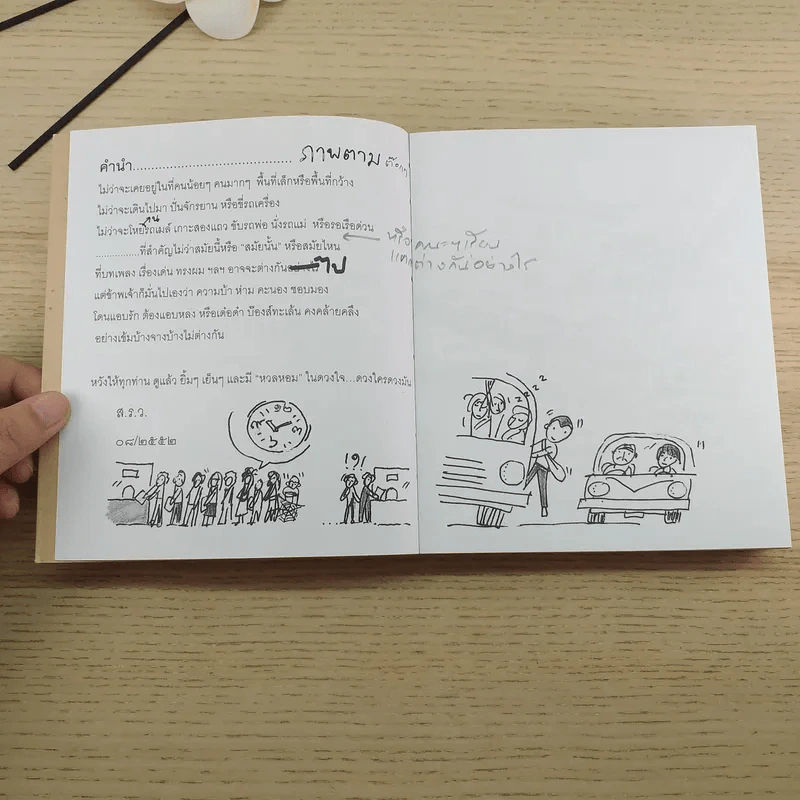 คำนำ........................................ ภาพตาม
ไม่ว่าจะเคยอยู่ในที่คนน้อยๆ คนมากๆ พื้นที่เล็กหรือพื้นที่กว้าง
ไม่ว่าจะเดินไปมา ปั่นจักรยาน หรือขี่รถเครื่อง
ไม่ว่าจะโหยรถเมล์ เกาะสองแถว ขับรถพ่อ นั่งรถแม่ หรือรอเรือด่วน
..............ที่สำคัญไม่ว่าสมัยนี้หรือ "สมัยนั้น" หรือสมัยไหน
หรือคณะฯ เรียน
แตกต่างกันอย่างไร
ที่บทเพลง เรื่องเด่น ทรงผม ฯลฯ อาจจะต่างกัน ไป
แต่ข้าพเจ้าก็มั่นไปเองว่า ความบ้า ห่าม คะนอง ชอบมอง
โดนแอบรัก ต้องแอบหลง หรือเต๋อดำ บ๊องส์ทะเล้น คงคล้ายคลึง
อย่างเข้มบ้างจางบ้างไม่ต่างกัน
หวังให้ทุกท่าน ดูแล้ว ยิ้มๆ เย็นๆ และมี "หวลหอม" ในดวงใจ...ดวงใครดวงมัน
ส.ร.ว.
๐๘/๒๕๕๒
!?!
zzzz